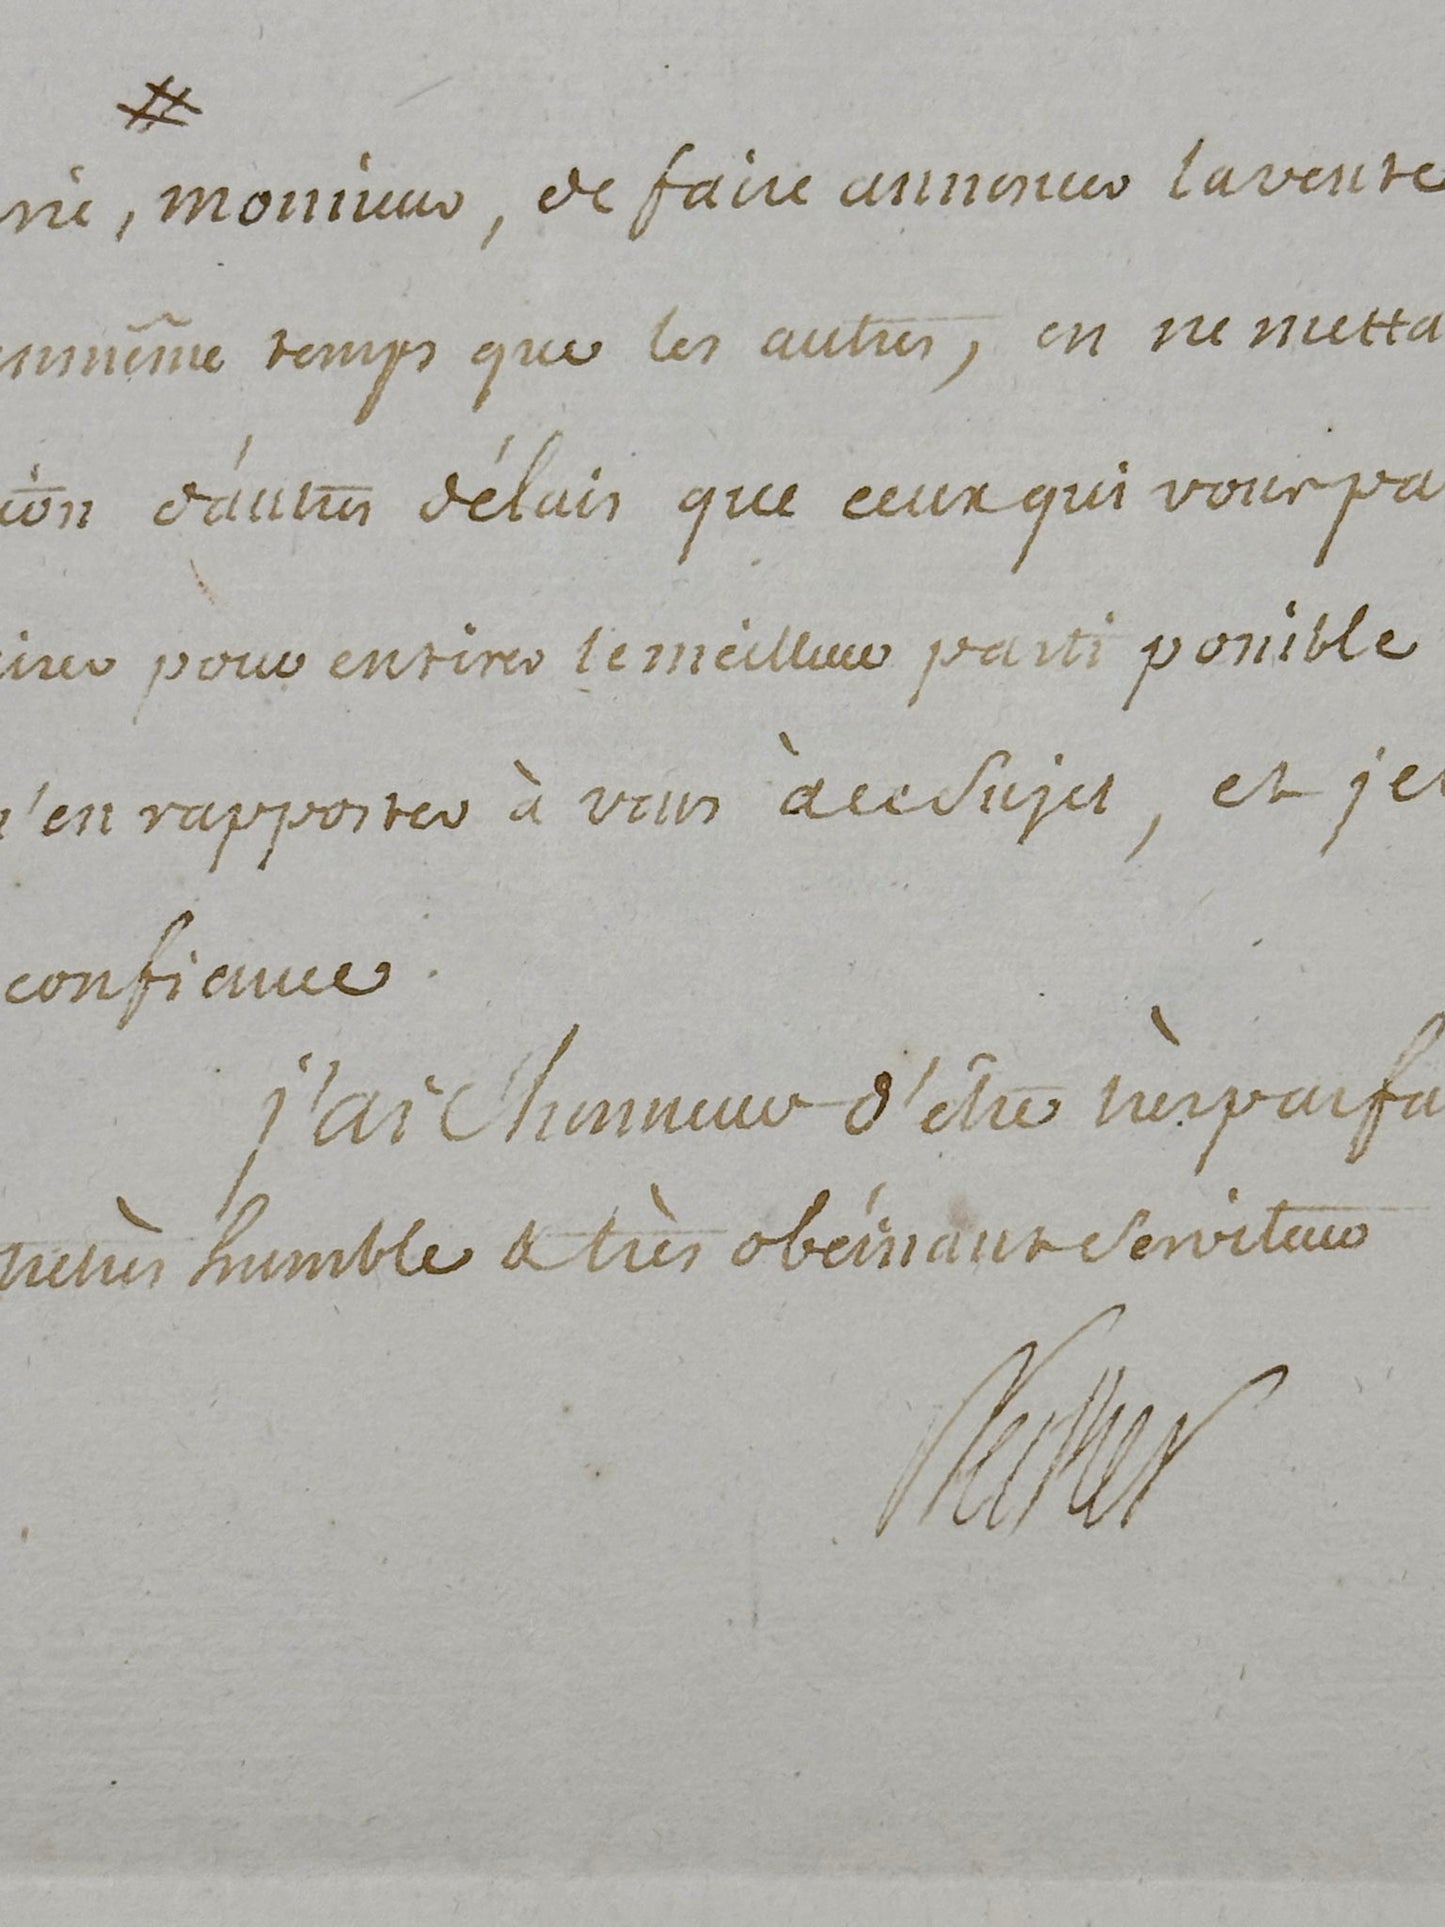 #
, monsieur, de faire annoncer la vente
en même temps que les autres, en ne metta
ion d'autres délais que ceux qui vous pa
pour en tirer le meilleur parti possible
m'en rapporter à vous à ce Sujet, et je
confiance.
j'ai l'honneur d'être très parfa
tre très humble & très obéissant Serviteur
Necker